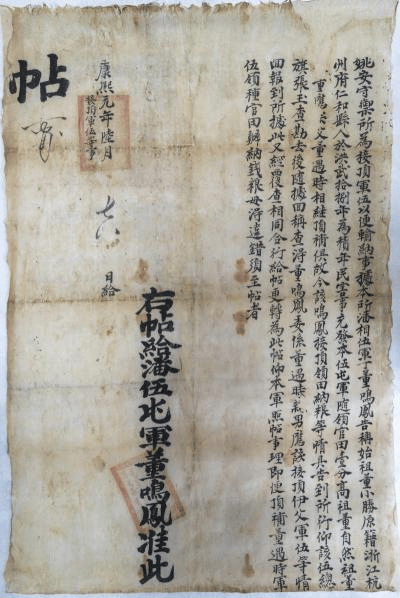 姚安守禦所為接頂軍伍以便輸納事據本所潘相伍軍丁董鳴鳳告稱始祖董小勝原籍浙江杭
州府仁和縣人於洪武拾捌年為積年民害事充發本伍屯軍隨領官田壹分高祖董自然祖董
董鷹父董遇時相繼頂補俱故今該鳴鳳接頂領田納粮等情具告到所行仰該伍總
旗張玉查勘去後隨據回稱查得董鳴鳳委係董遇時親男應該接頂伊父軍伍等情
回報到所據此又經覆查相同合行給帖更轉為此帖仰本軍照帖事理即便頂補董遇時軍
伍領種官田辦納錢粮毋得違錯須至帖者
存帖給潘伍屯軍董鳴鳳准此
康熙元年陸月 日給
接頂軍伍等事
帖